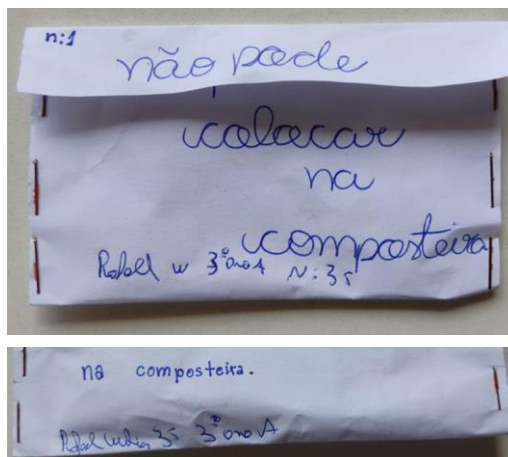 n:1
não pode
colocar
na
composteira
Rafael w 3º ano A N: 35
na composteira.
Rafael 35 3º ano A